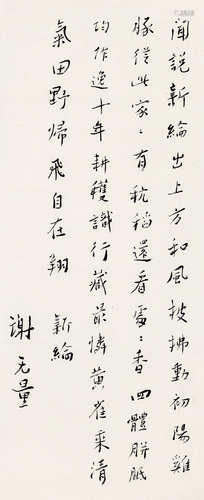 聞說新綸出上方和風披拂動初陽雞
豚從此家〻有秔稻還看處〻香四體胼胝
均作逸十年耕穫識行藏最憐黃雀乘清
氣田野歸飛自在翔 新綸
謝无量